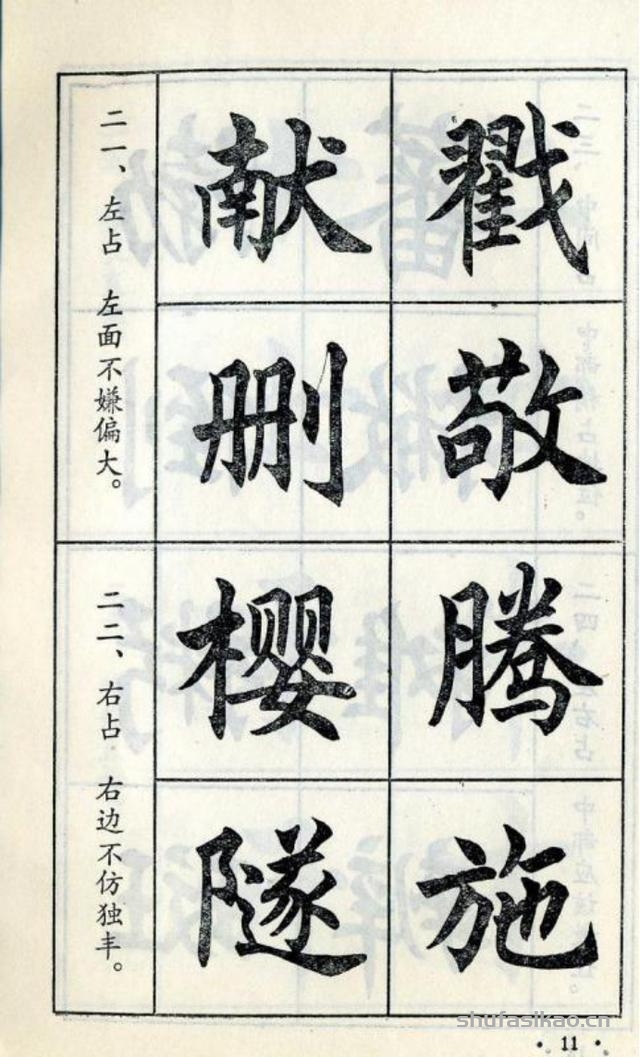 戳
敬
献
删
二一、左占 左面不嫌偏大。
腾
施
樱
隧
二二、右占 右边不仿独丰。
shufasikao.cn
·11·